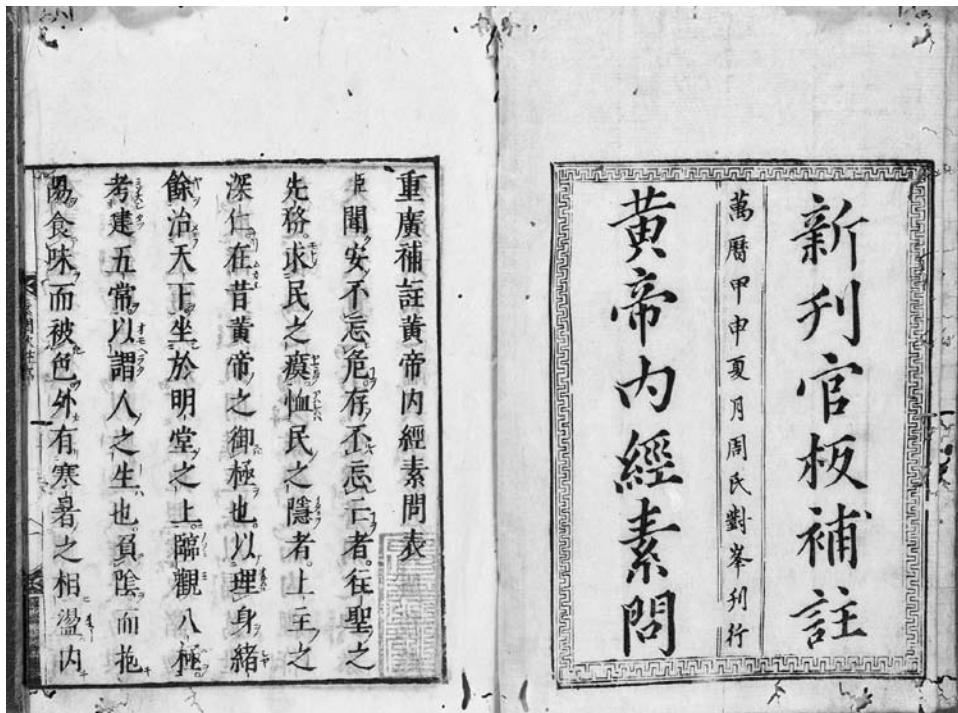 新刊官板補註
萬曆甲申夏月周氏對峯刊行
黃帝內經素問
重廣補註黃帝内經素問表
臣聞安不忘危存不忘亡者往聖之
先務求民之瘼恤民之隱者上主之
深仁在昔黃帝之御極也以理身緒
餘治天下坐於明堂之上臨觀八極
考建五常以謂人之生也負陰而抱
陽食味而被色外有寒暑之相盪内